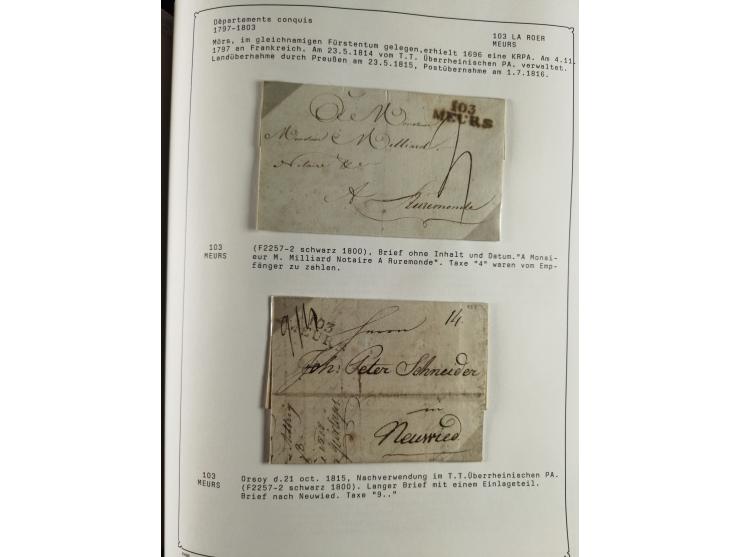 Départements conquis
1797-1803
103 LA ROER
MEURS
Mörs, im gleichnamigen Fürstentum gelegen,erhielt 1696 eine KRPA. Am 4.11.
1797 an Frankreich. Am 23.5.1814 vom T.T. Überrheinischen PA. verwaltet.
Landübernahme durch Preußen am 23.5.1815, Postübernahme am 1.7.1816.
103
MEURS
A Monsieur
Monsieur Milliard
Notaire &c
A Ruremonde
103
MEURS
(F2257-2 schwarz 1800). Brief ohne Inhalt und Datum."A Monsi-
eur M. Milliard Notaire A Ruremonde". Taxe "4" waren vom Emp-
fänger zu zahlen.
103
MEURS
14.
Herrn
Joh: Peter Schneider
in
Neuwied
103
MEURS
Orsoy d.21 oct. 1815, Nachverwendung im T.T.Überrheinischen PA.
(F2257-2 schwarz 1800). Langer Brief mit einem Einlageteil.
Brief nach Neuwied. Taxe "9.."